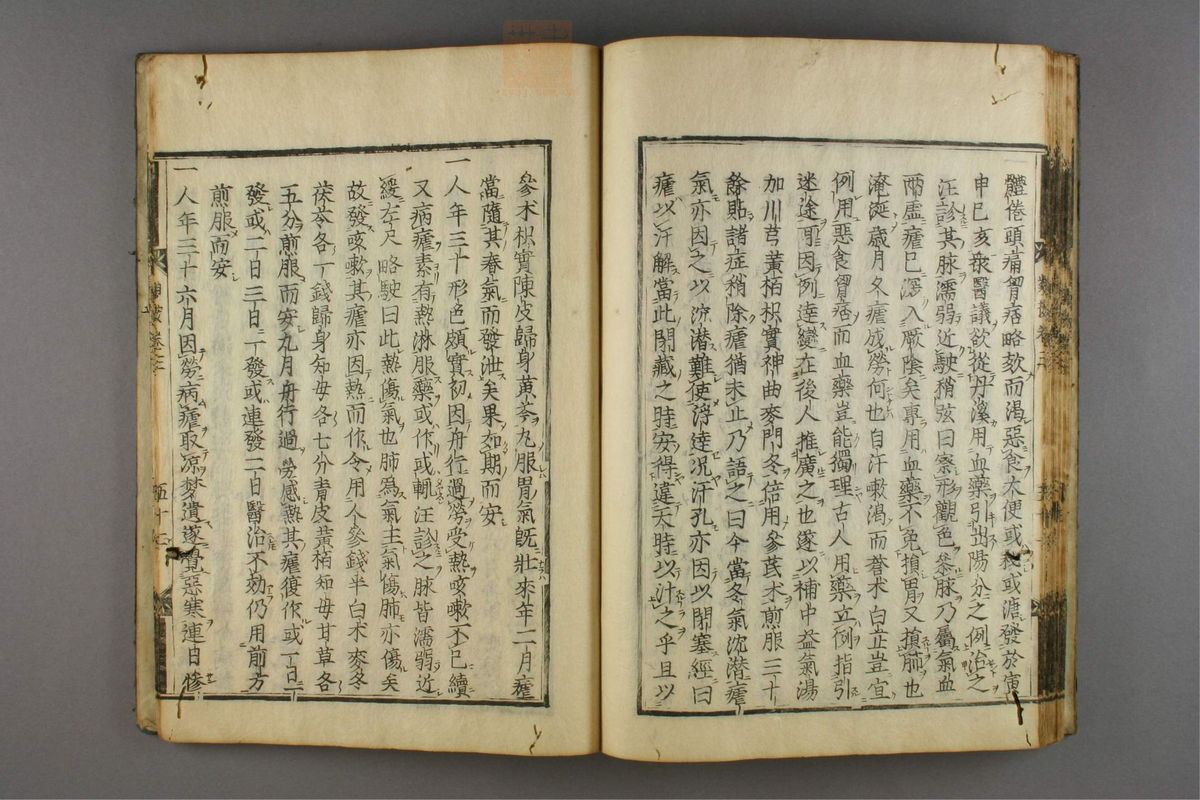 體倦頭痛胷痞略欬而渴惡食大便或秘或溏發於寅
申巳亥衆醫議欲從丹溪用血藥引出陽分之例治之
汪診其脉濡弱近駛稍弦曰察形觀色參脉乃屬氣血
兩虛瘧已深入厥陰矣專用血藥不免損胃又損肺也
淹延歲月久瘧成勞何也自汗嗽渴而蒼术白芷豈宜
例用惡食胷痞而血藥豈能獨理古人用藥立例指引
迷途耳因例達變在後人推廣之也遂以補中益氣湯
加川芎黃栢枳實神曲麥門冬倍用參茋术煎服三十
餘貼諸症稍除瘧猶未止乃語之曰今當冬氣沈潜瘧
氣亦因之以沈潜難使浮達况汗孔亦因以閉塞經曰
瘧以汗解當此閉藏之時安得違天時以汁之乎且以
參术枳實陳皮歸身黃芩丸服胃氣旣壯來年二月瘧
當隨其春氣而發泄矣果如期而安
一人年三十形色頗實初因舟行過勞受熱咳嗽不已續
又病瘧素有熱淋服藥或作或輒汪診之脉皆濡弱近
緩左尺略駛曰此熱傷氣也肺爲氣主氣傷肺亦傷矣
故發咳嗽其瘧亦因熱而作令用人參錢半白术麥冬
茯苓各一錢歸身知毋各七分青皮黃栢知毋甘草各
五分煎服而安九月舟行過勞感熱其瘧復作或一日一
發或二日三日一發或連發二日醫治不効仍用前方
煎服而安
一人年三十六月因勞病瘧取凉梦遺遂覺惡寒連日慘
五十二